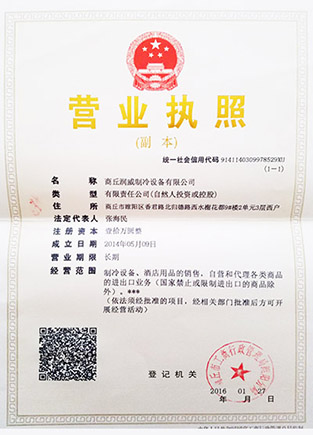 营业执照
(副 本)
统一社会信用代码 91411403099978529XU
(1-1)
名 称 商丘润威制冷设备有限公司
类 型 有限责任公司(自然人投资或控股)
住 所 商丘市睢阳区香君路北归德路西水榭花都9#楼2单元3层西户
法定代表人 张海民
注册资本 壹拾万圆整
成立日期 2014年05月09日
营业期限 长期
经营范围 制冷设备、酒店用品的销售,自营和代理各类商品
的进出口业务(国家禁止或限制进出口的商品除
外)。***
(依法须经批准的项目,经相关部门批准后方可开
展经营活动)
登记机关
2016 01 27
年 月 日